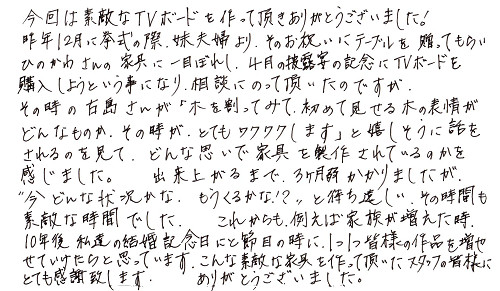 今回は素敵なTVボードを作って頂きありがとうございました!
昨年12月に挙式の際、妹夫婦より、そのお祝いにテーブルを贈ってもらい
ひのかわさんの家具に一目ぼれし、4月の披露宴の記念にTVボードを
購入しようという事になり、相談にのって頂いたのですが、
その時の古島さんが「木を割ってみて、初めて見せる木の表情が
どんなものか、その時が、とてもワクワクします」と嬉しそうに話を
されるのを見て、どんな思いで家具を製作されているのかを
感じました。 出来上がるまで、3ヶ月弱かかりましたが、
"今どんな状況かな、もうくるかな!?"と待ち遠しい、その時間も
素敵な時間でした。 これからも、例えば家族が増えた時、
10年後 私達の結婚記念日にと節目の時に、1つ1つ皆様の作品を増や
せていけたらと思っています。こんな素敵な家具を作って頂いたスタッフの皆様に
とても感謝致します。 ありがとうございました。